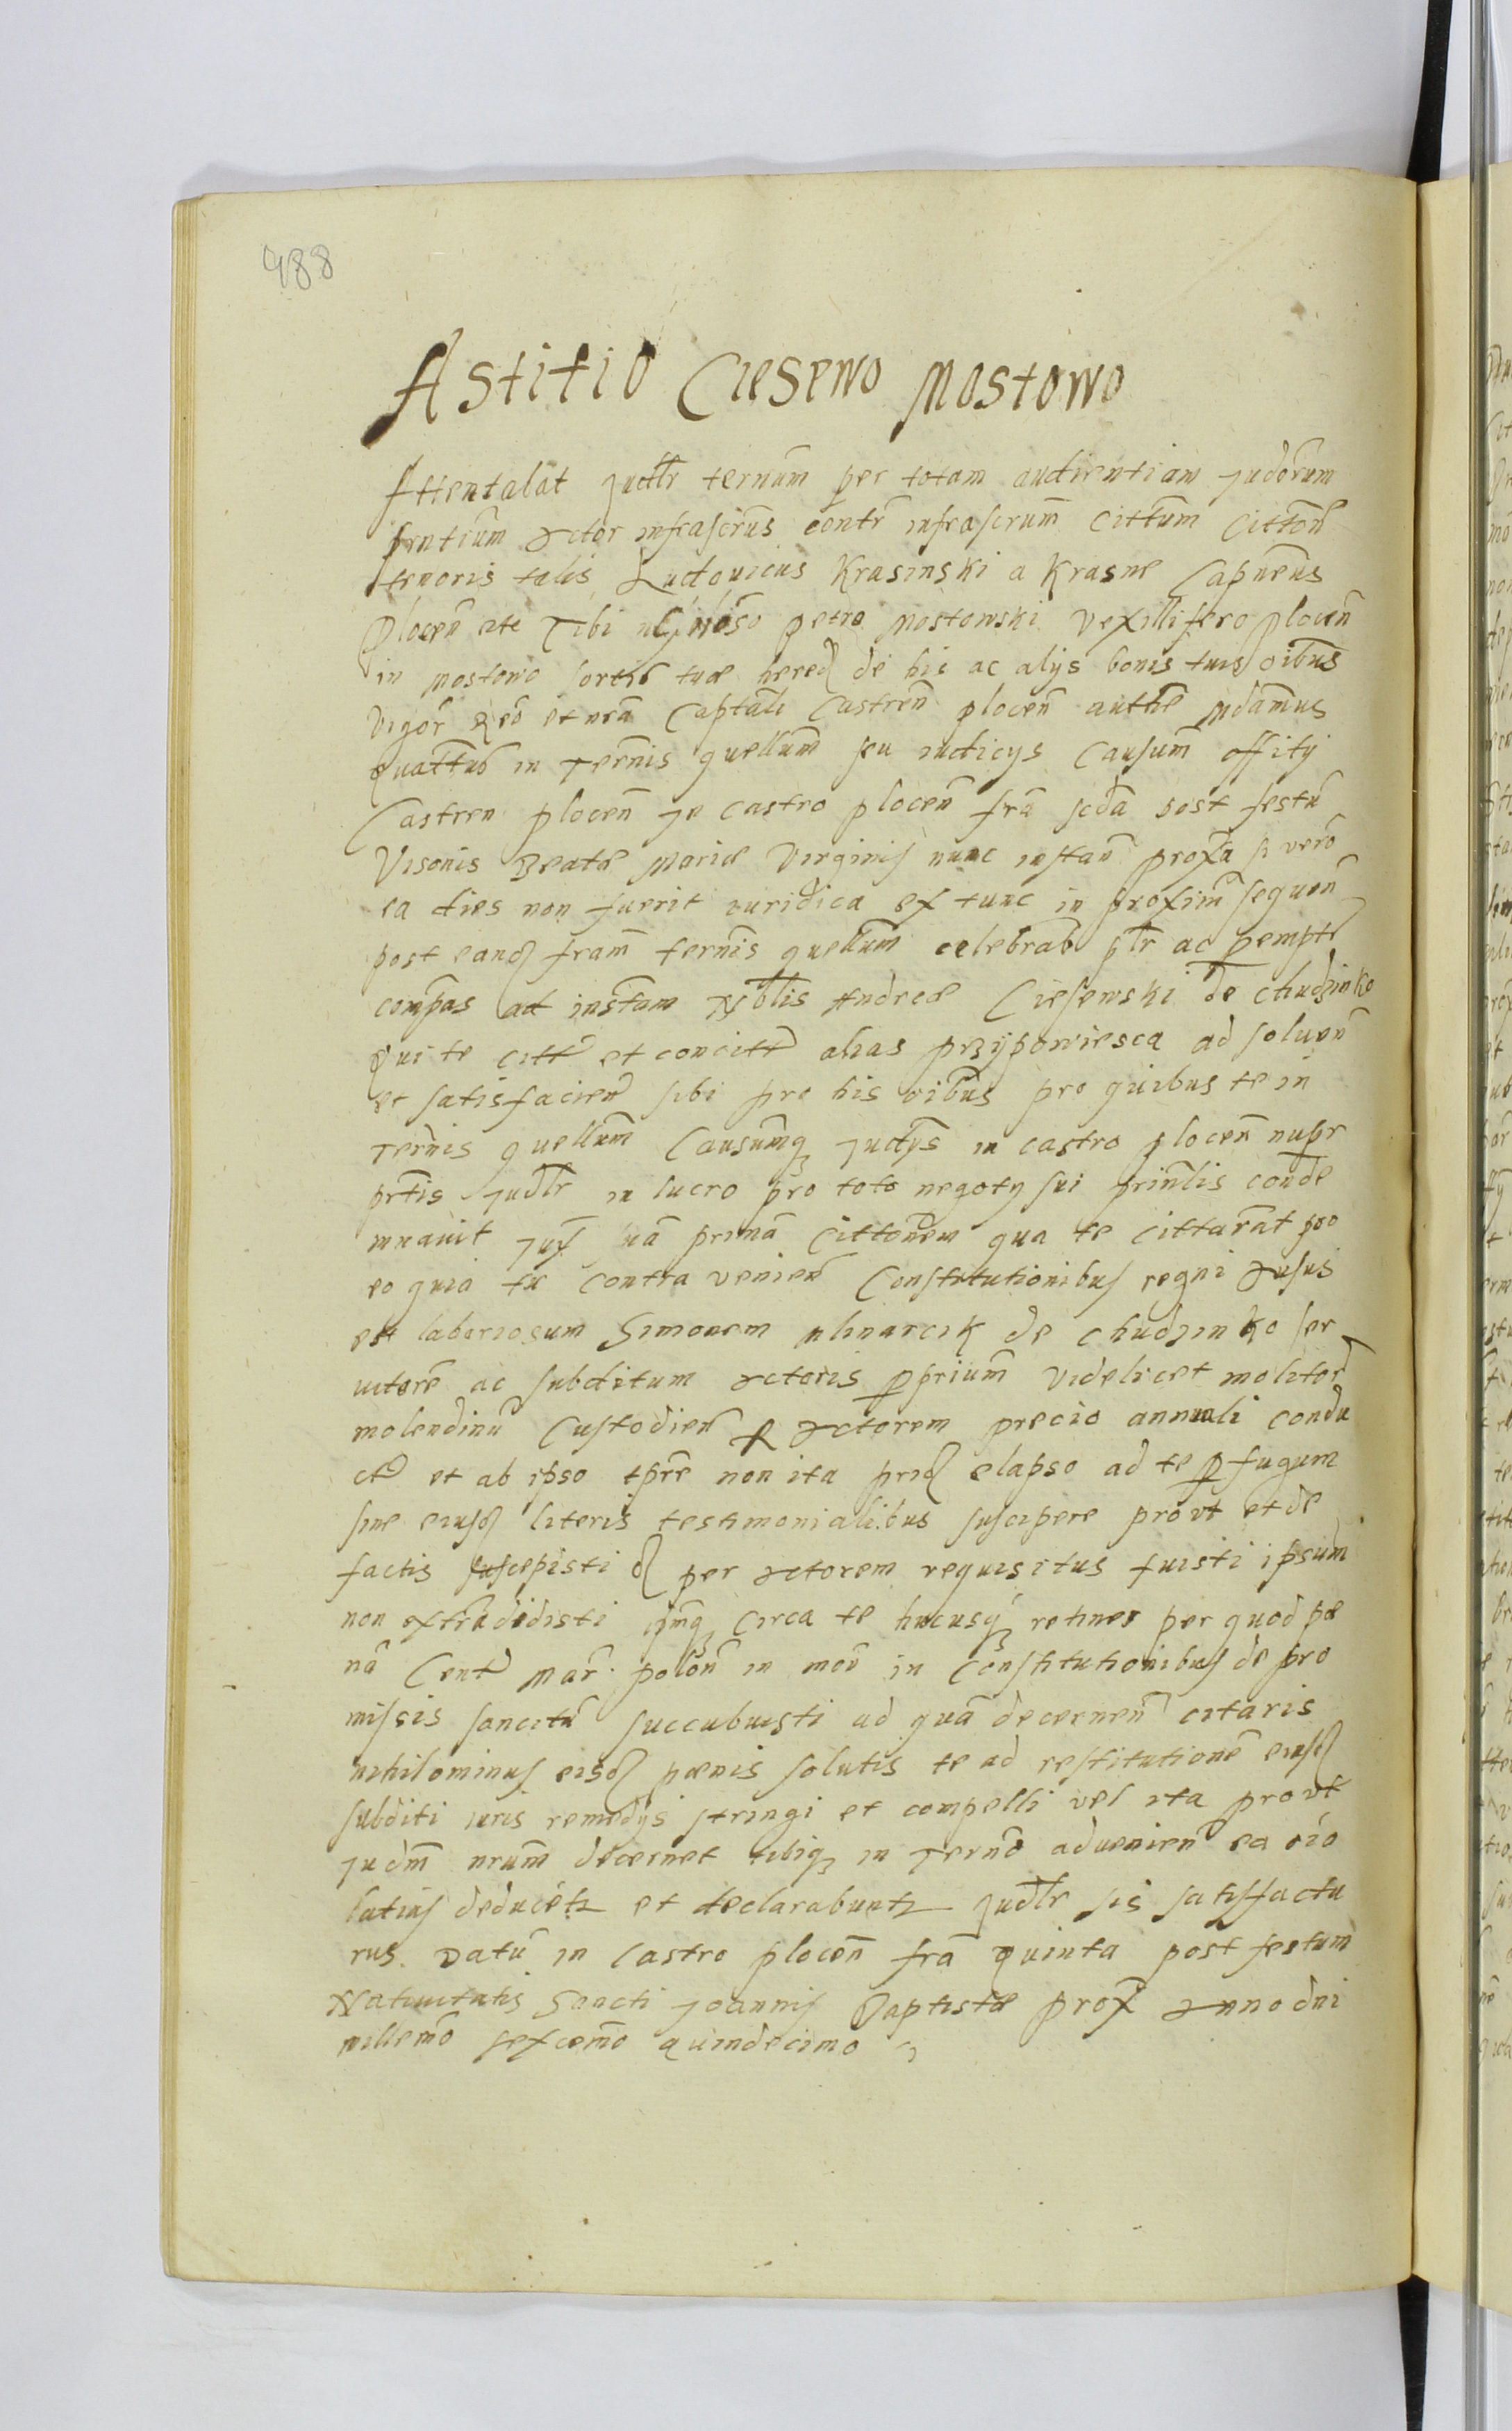 988
Astitio Ciesewo Mostowo
Attentabat Judlr ternum per totam audientiam Judorum
prntium Actor infrascrus contr infrascrum cittum Citton
tenoris talis Ludovicus Krasinski a Krasne Capneus
Plocen etc Tibi Petro Mostowski Vexillifero Plocen
in Mostowo sortis tuæ hered de his ac alys bonis tuis oibus
vigor Reo et nra Captali Castren plocen authe Mdamus
quattus in Ternis quellum seu iudicys Causum offity
Castren plocen Jn Castro plocen fra scda post festu
Visonis Beatæ Mariæ Virginis nunc instan proxa si vero
ea dies non fuerit iuridica ex tunc in proxim sequen
post eand fram ternis quellum celebrab plr ac pempte
compas ad instam Nblis Andreæ Ciesewski de Chudzinko
Qui te citt et concitt alias przypowiesca ad soluen
et satisfacien sibi pro his oibus pro quibus te in
Ternis quellum Causumq Judys in castro plocen nupr
prtis Judlr in lucro pro toto negoty sui prinlis conde
mnauit Jux sua prima Cittonem qua te cittarat pro
eo quia tu contra venien Constitutionibus regni Ausus
est laboriosum Simonem Mlinarcik de Chudzinko ser
uitore ac subditum Actoris pprium videlicet molitor
molendinu Custodien p Actorem precio annuali condu
ct et ab ipso tpre non ita prid elapso ad te pfugum
sine eiusd literis testimonialibus suscipere prout et de
factis suscepisti d per Actorem requisitus fuisti ipsum
non extradidisti ipmq circa te hucusq retines per quod pæ
na Cent Mar. polon in mon in Constitutionibus de præ
missis sancita succubuisti ad qua decernen citaris
nihilominus eisd pænis solutis te ad restitutione eiusd
subditi iuris remedys stringi et compelli vel ita prout
Judm nrum decernet tibiq in Terno aduenien ea oio
latius deducetz et declarabuntz Judlr sis satisfactu
rus. Datu in Castro plocen fra quinta post festum
Natiuitatis Sancti Joannis Baptistæ prox Anno dni
millemo sexcemo quindecimo